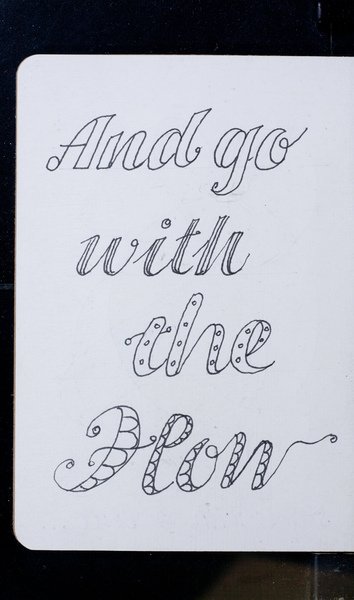 And go
with
the
Flow